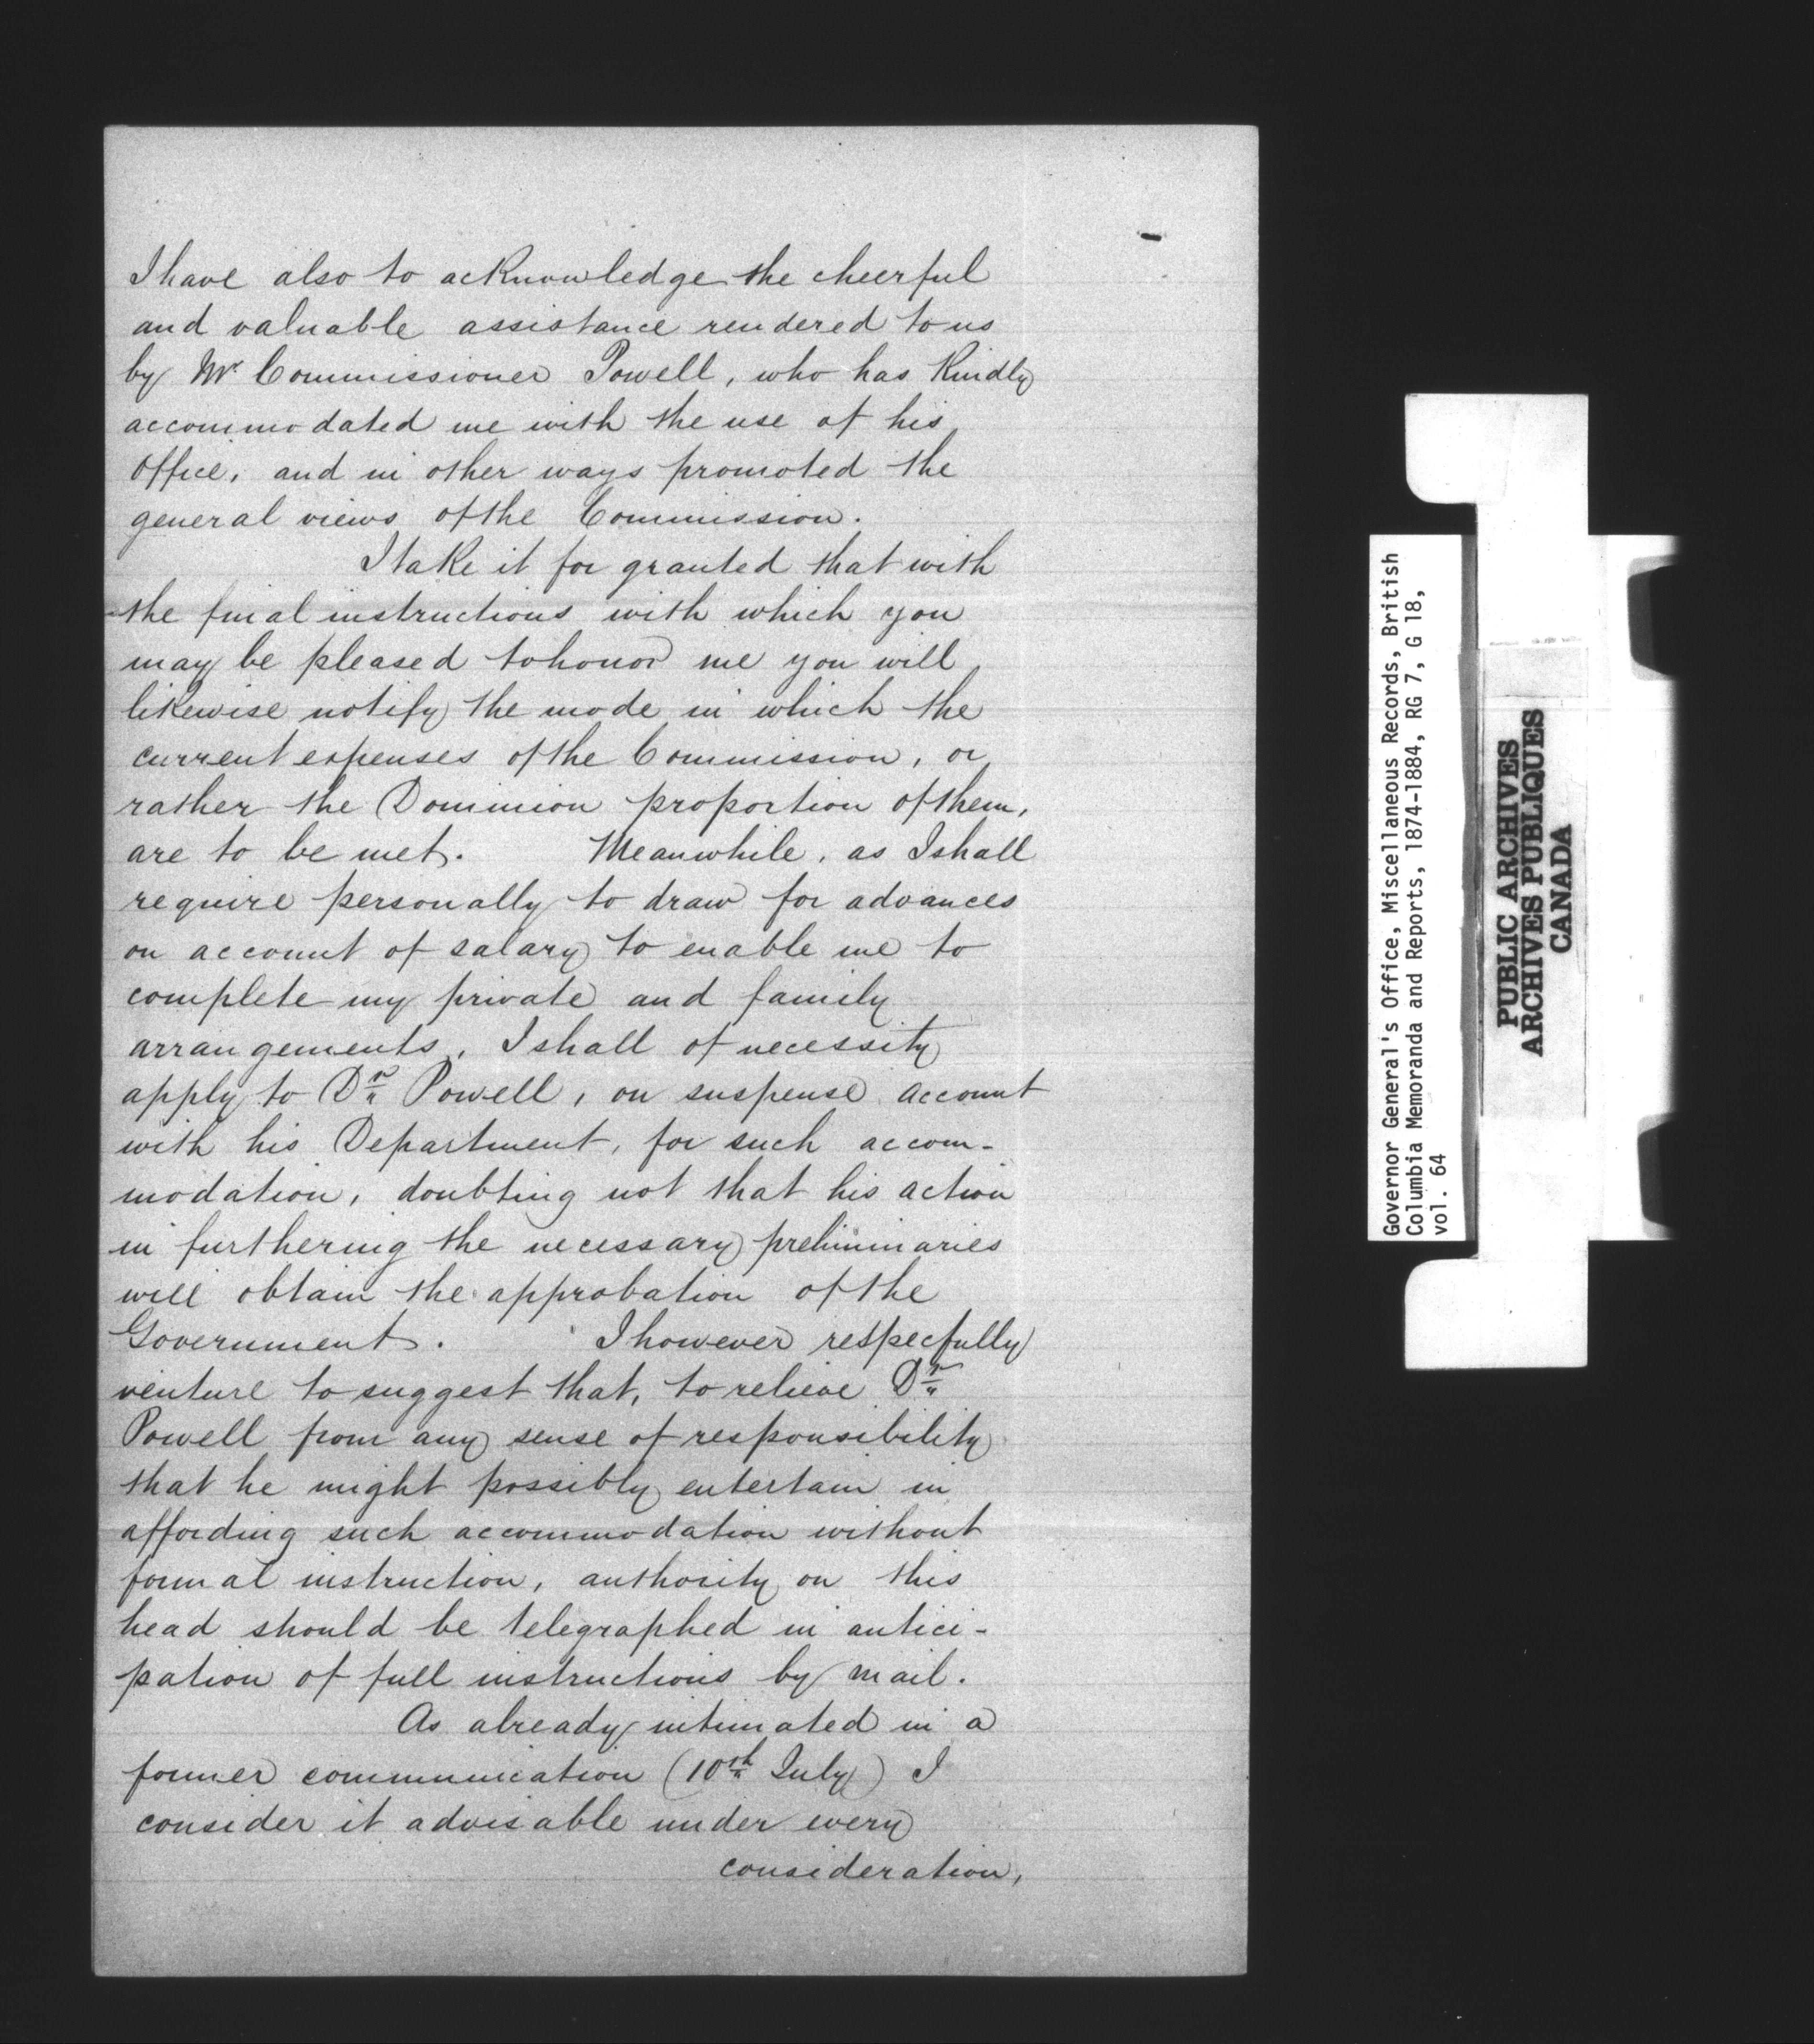 I have also to acknowledge the cheerful
and valuable assistance rendered to us
by Mr Commissioner Powell, who has kindly
accommodated me with the use of his
office, and in other ways promoted the
general views of the Commission.
I take it for granted that with
the final instructions with which you
may be pleased to honor me you will
likewise notify the mode in which the
current expenses of the Commission, or
rather the Dominion proportion of them,
are to be met. Meanwhile, as I shall
require personally to draw for advances
on account of salary to enable me to
complete my private and family
arrangements, I shall of necessity
apply to Dr Powell, on suspense account
with his Department, for such accom-
modation, doubting not that his action
in furthering the necessary preliminaries
will obtain the approbation of the
Government. I however respecfully
venture to suggest that, to relieve Dr
Powell from any sense of responsibility
that he might possibly entertain in
affording such accommodation without
formal instruction, authority on this
head should be telegraphed in antici-
pation of full instructions by mail.
As already intimated in a
former communication (10th July) I
consider it advisable under every
consideration,
Governor General's Office, Miscellaneous Records, British
Columbia Memoranda and Reports, 1874-1884, RG 7, G 18,
vol. 64
PUBLIC ARCHIVES
ARCHIVES PUBLIQUES
CANADA